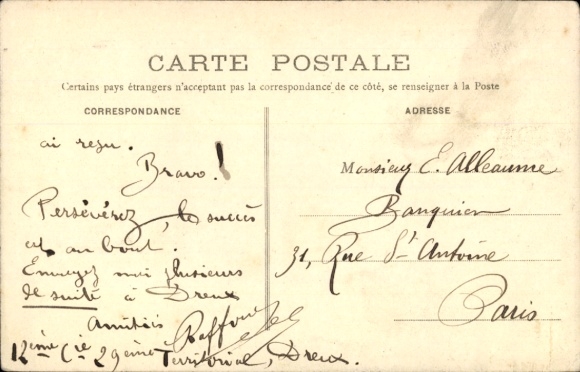 CARTE POSTALE
Certains pays étrangers n'acceptant pas la correspondance de ce côté, se renseigner à la Poste
CORRESPONDANCE
ai reçu.
Bravo !
Persévérez, le succès
est au bout.
Envoyez moi plusieurs
de suite à Dreux
Amitiés
12ème Cie 29ème Territorial, Dreux.
ADRESSE
Monsieur E. Alleaume
Banquier
31, Rue St Antoine
Paris